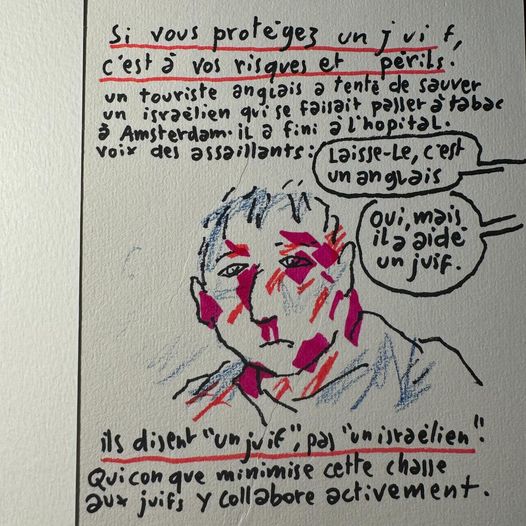 Si vous protégez un juif,
c'est à vos risques et périls.
un touriste anglais a tenté de sauver
un israélien qui se faisait passer à tabac
à Amsterdam. il a fini à l'hopital.
voix des assaillants :
Laisse-Le, c'est
un anglais
Oui, mais
il a aidé
un juif.
ils disent "un juif", pas "un israélien".
Quiconque minimise cette chasse
aux juifs y collabore activement.